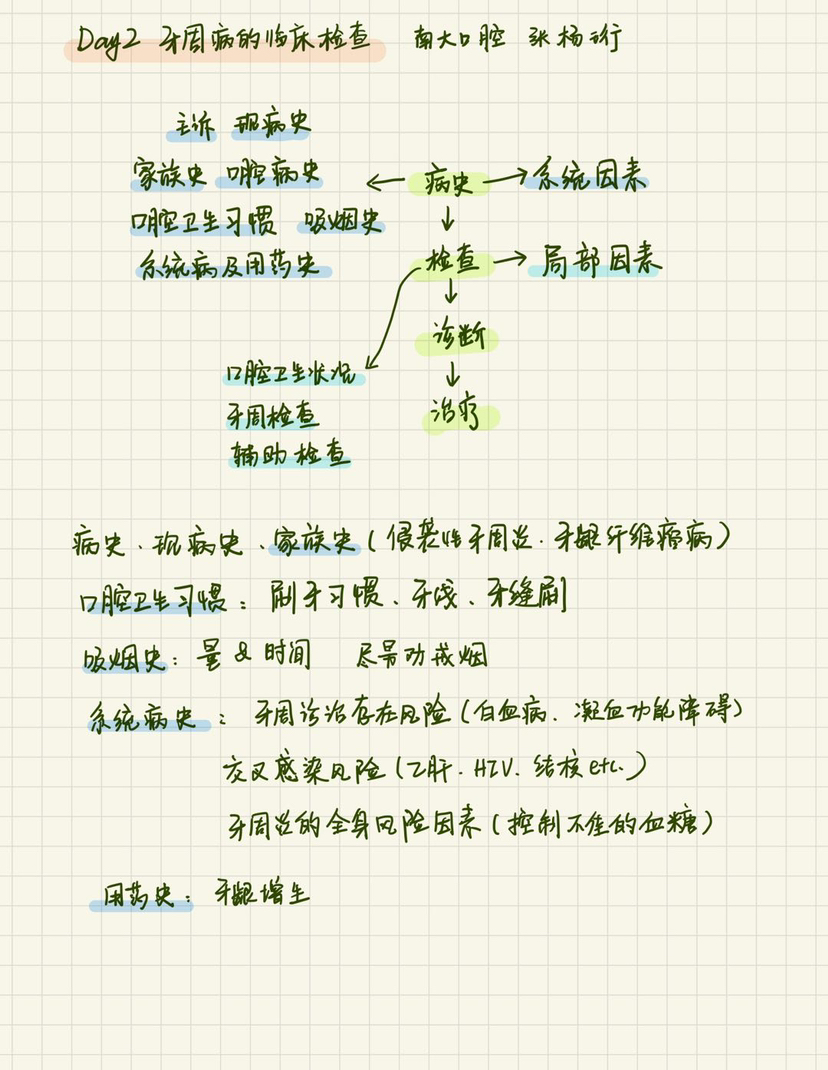 Day2 牙周病的临床检查 南大口腔 张杨珩
主诉 现病史
家族史 口腔病史 ← 病史 → 系统因素
↓
口腔卫生习惯 吸烟史
系统病及用药史 检查 → 局部因素
↓
诊断
口腔卫生状况 ↓
牙周检查 治疗
辅助检查
病史、现病史、家族史（侵袭性牙周炎、牙龈纤维瘤病）
口腔卫生习惯：刷牙习惯、牙线、牙缝刷
吸烟史：量 & 时间 尽早劝戒烟
系统病史：牙周诊治存在风险（白血病、凝血功能障碍）
交叉感染风险（乙肝、HIV、结核etc.）
牙周炎的全身风险因素（控制不佳的血糖）
用药史：牙龈增生